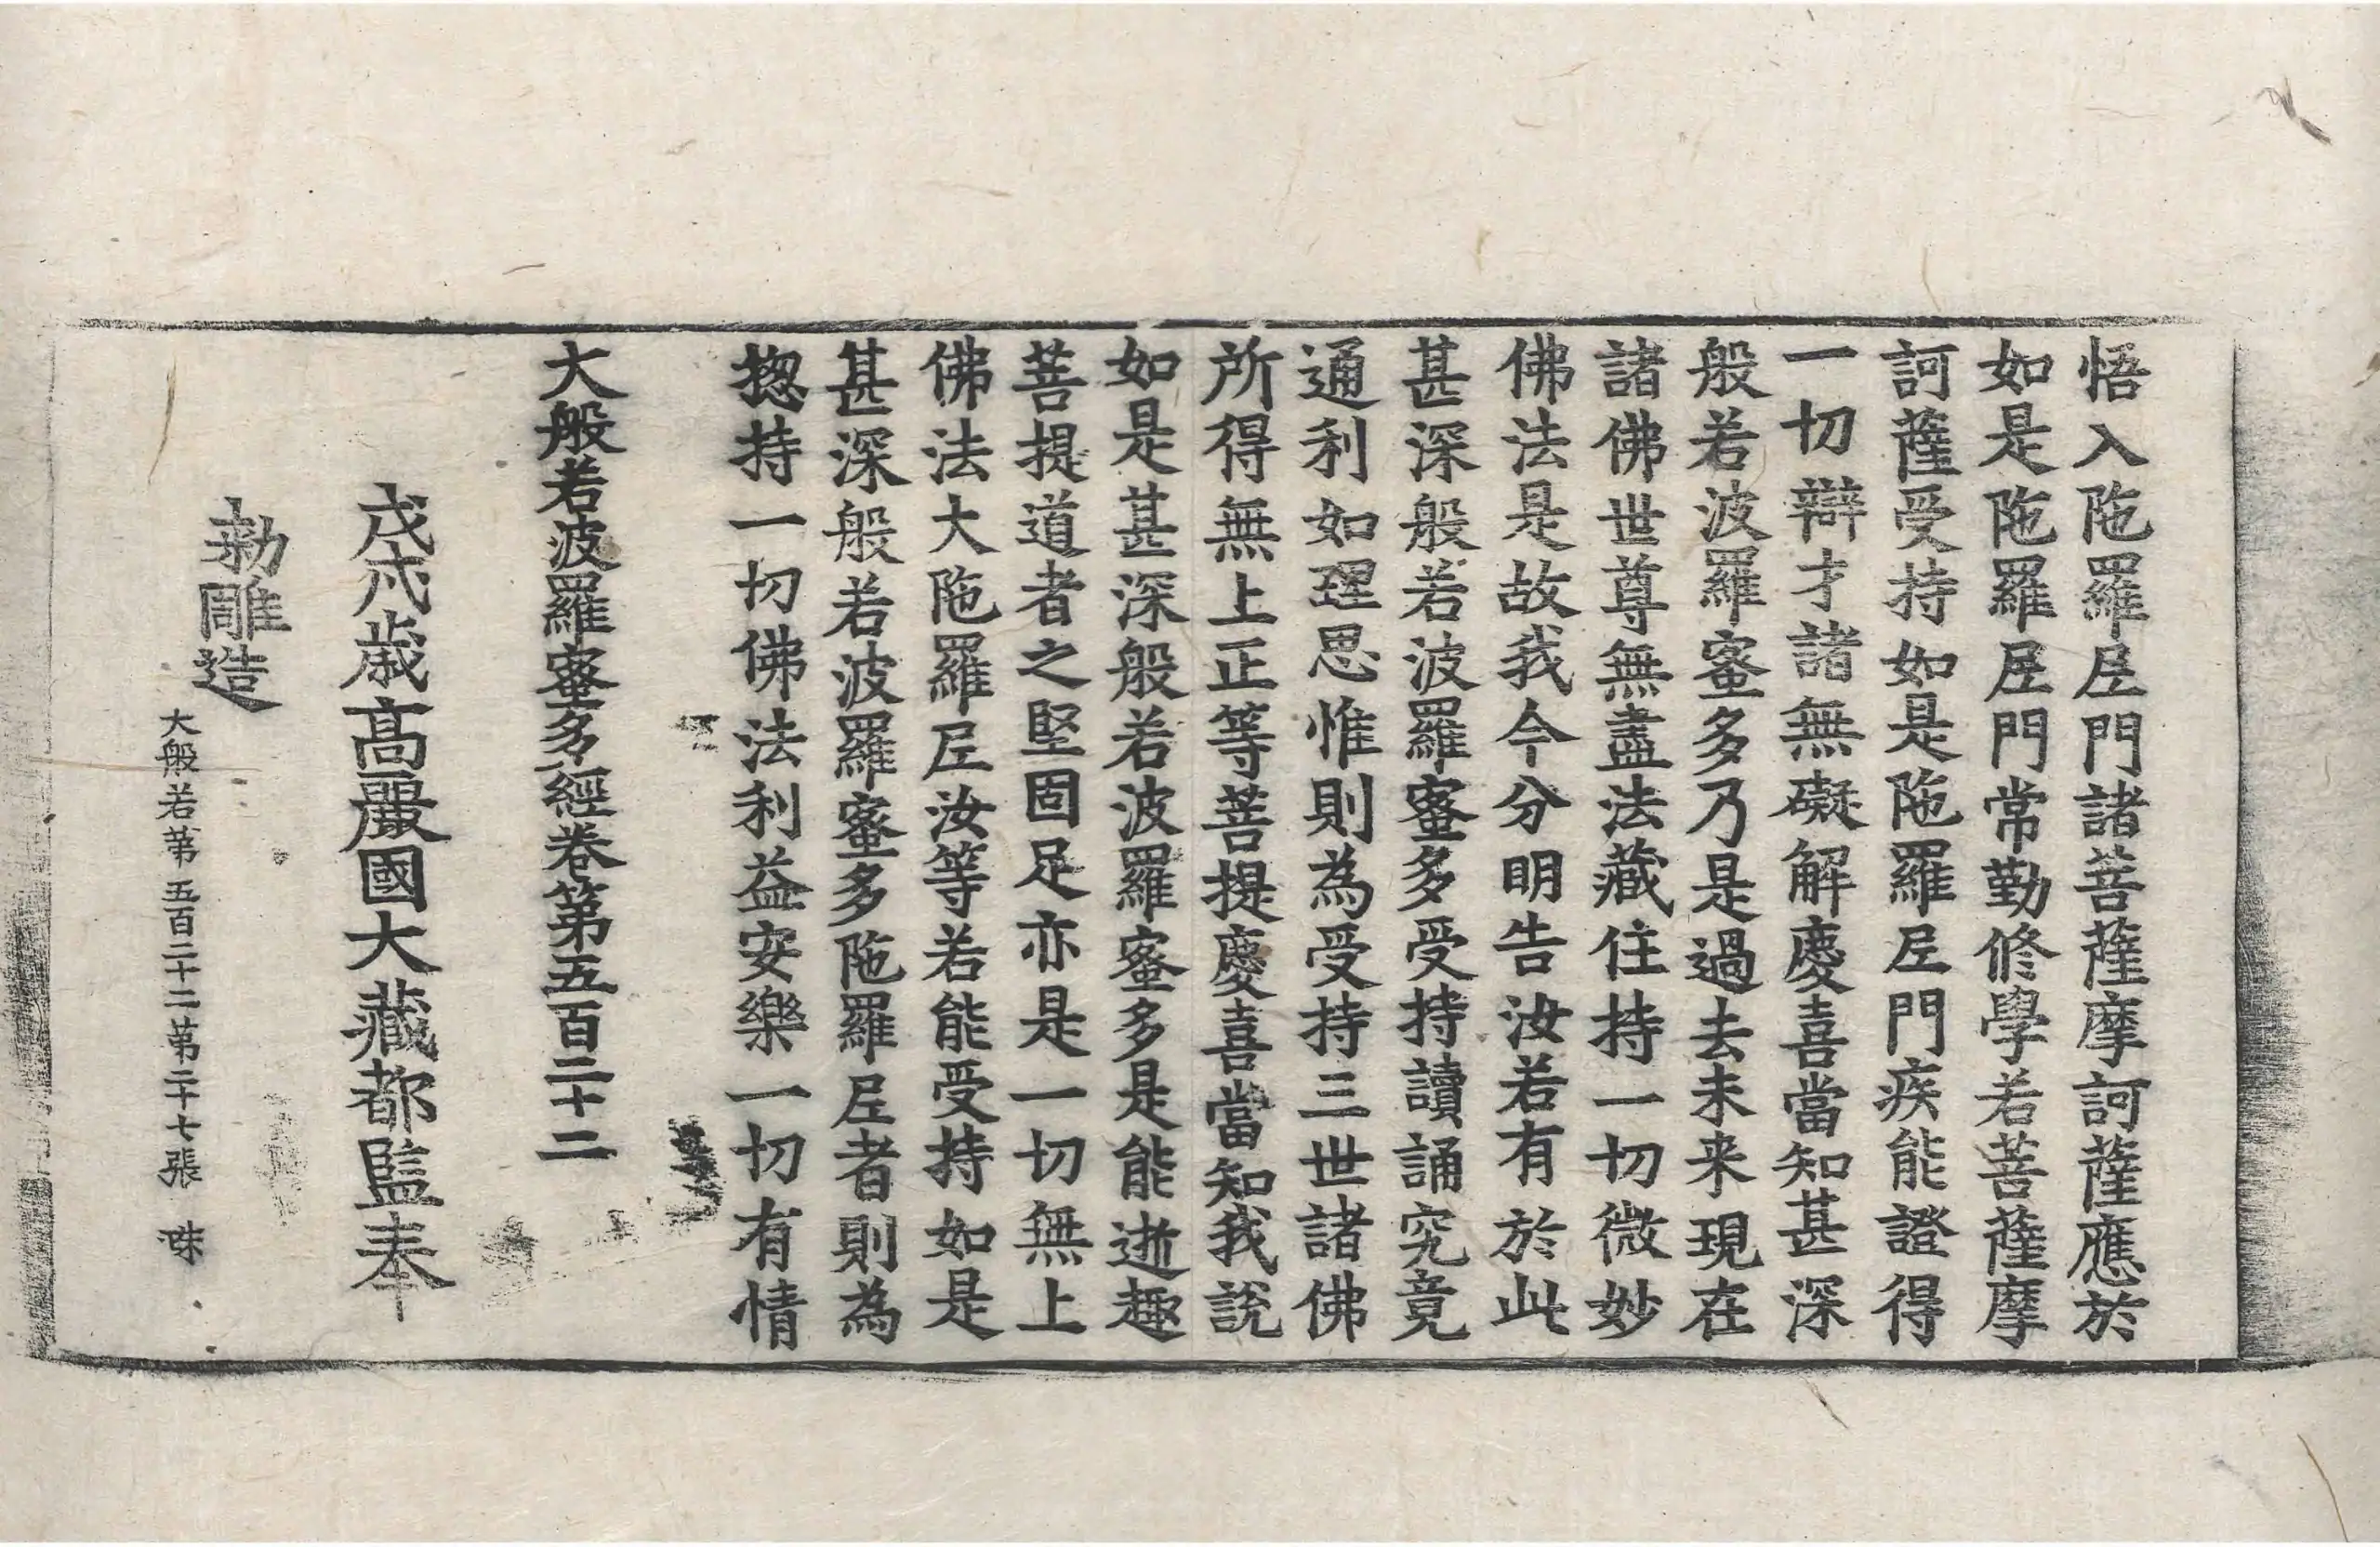 悟入陁羅𡰱門諸菩薩摩訶薩應於
如是陁羅𡰱門常勤修學若菩薩摩
訶薩受持如是陁羅𡰱門疾能證得
一切辯才諸無礙解慶喜當知甚深
般若波羅蜜多乃是過去未来現在
諸佛世尊無盡法藏住持一切微妙
佛法是故我今分明告汝若有於此
甚深般若波羅蜜多受持讀誦究竟
通利如理思惟則為受持三世諸佛
所得無上正等菩提慶喜當知我說
如是甚深般若波羅蜜多是能逝趣
菩提道者之堅固足亦是一切無上
佛法大陁羅𡰱汝等若能受持如是
甚深般若波羅蜜多陁羅𡰱者則為
揔持一切佛法利益安樂一切有情
大般若波羅蜜多經卷第五百二十二
戊戌歲高麗國大藏都監奉
勅雕造
大般若第五百二十二第二十七張 洙